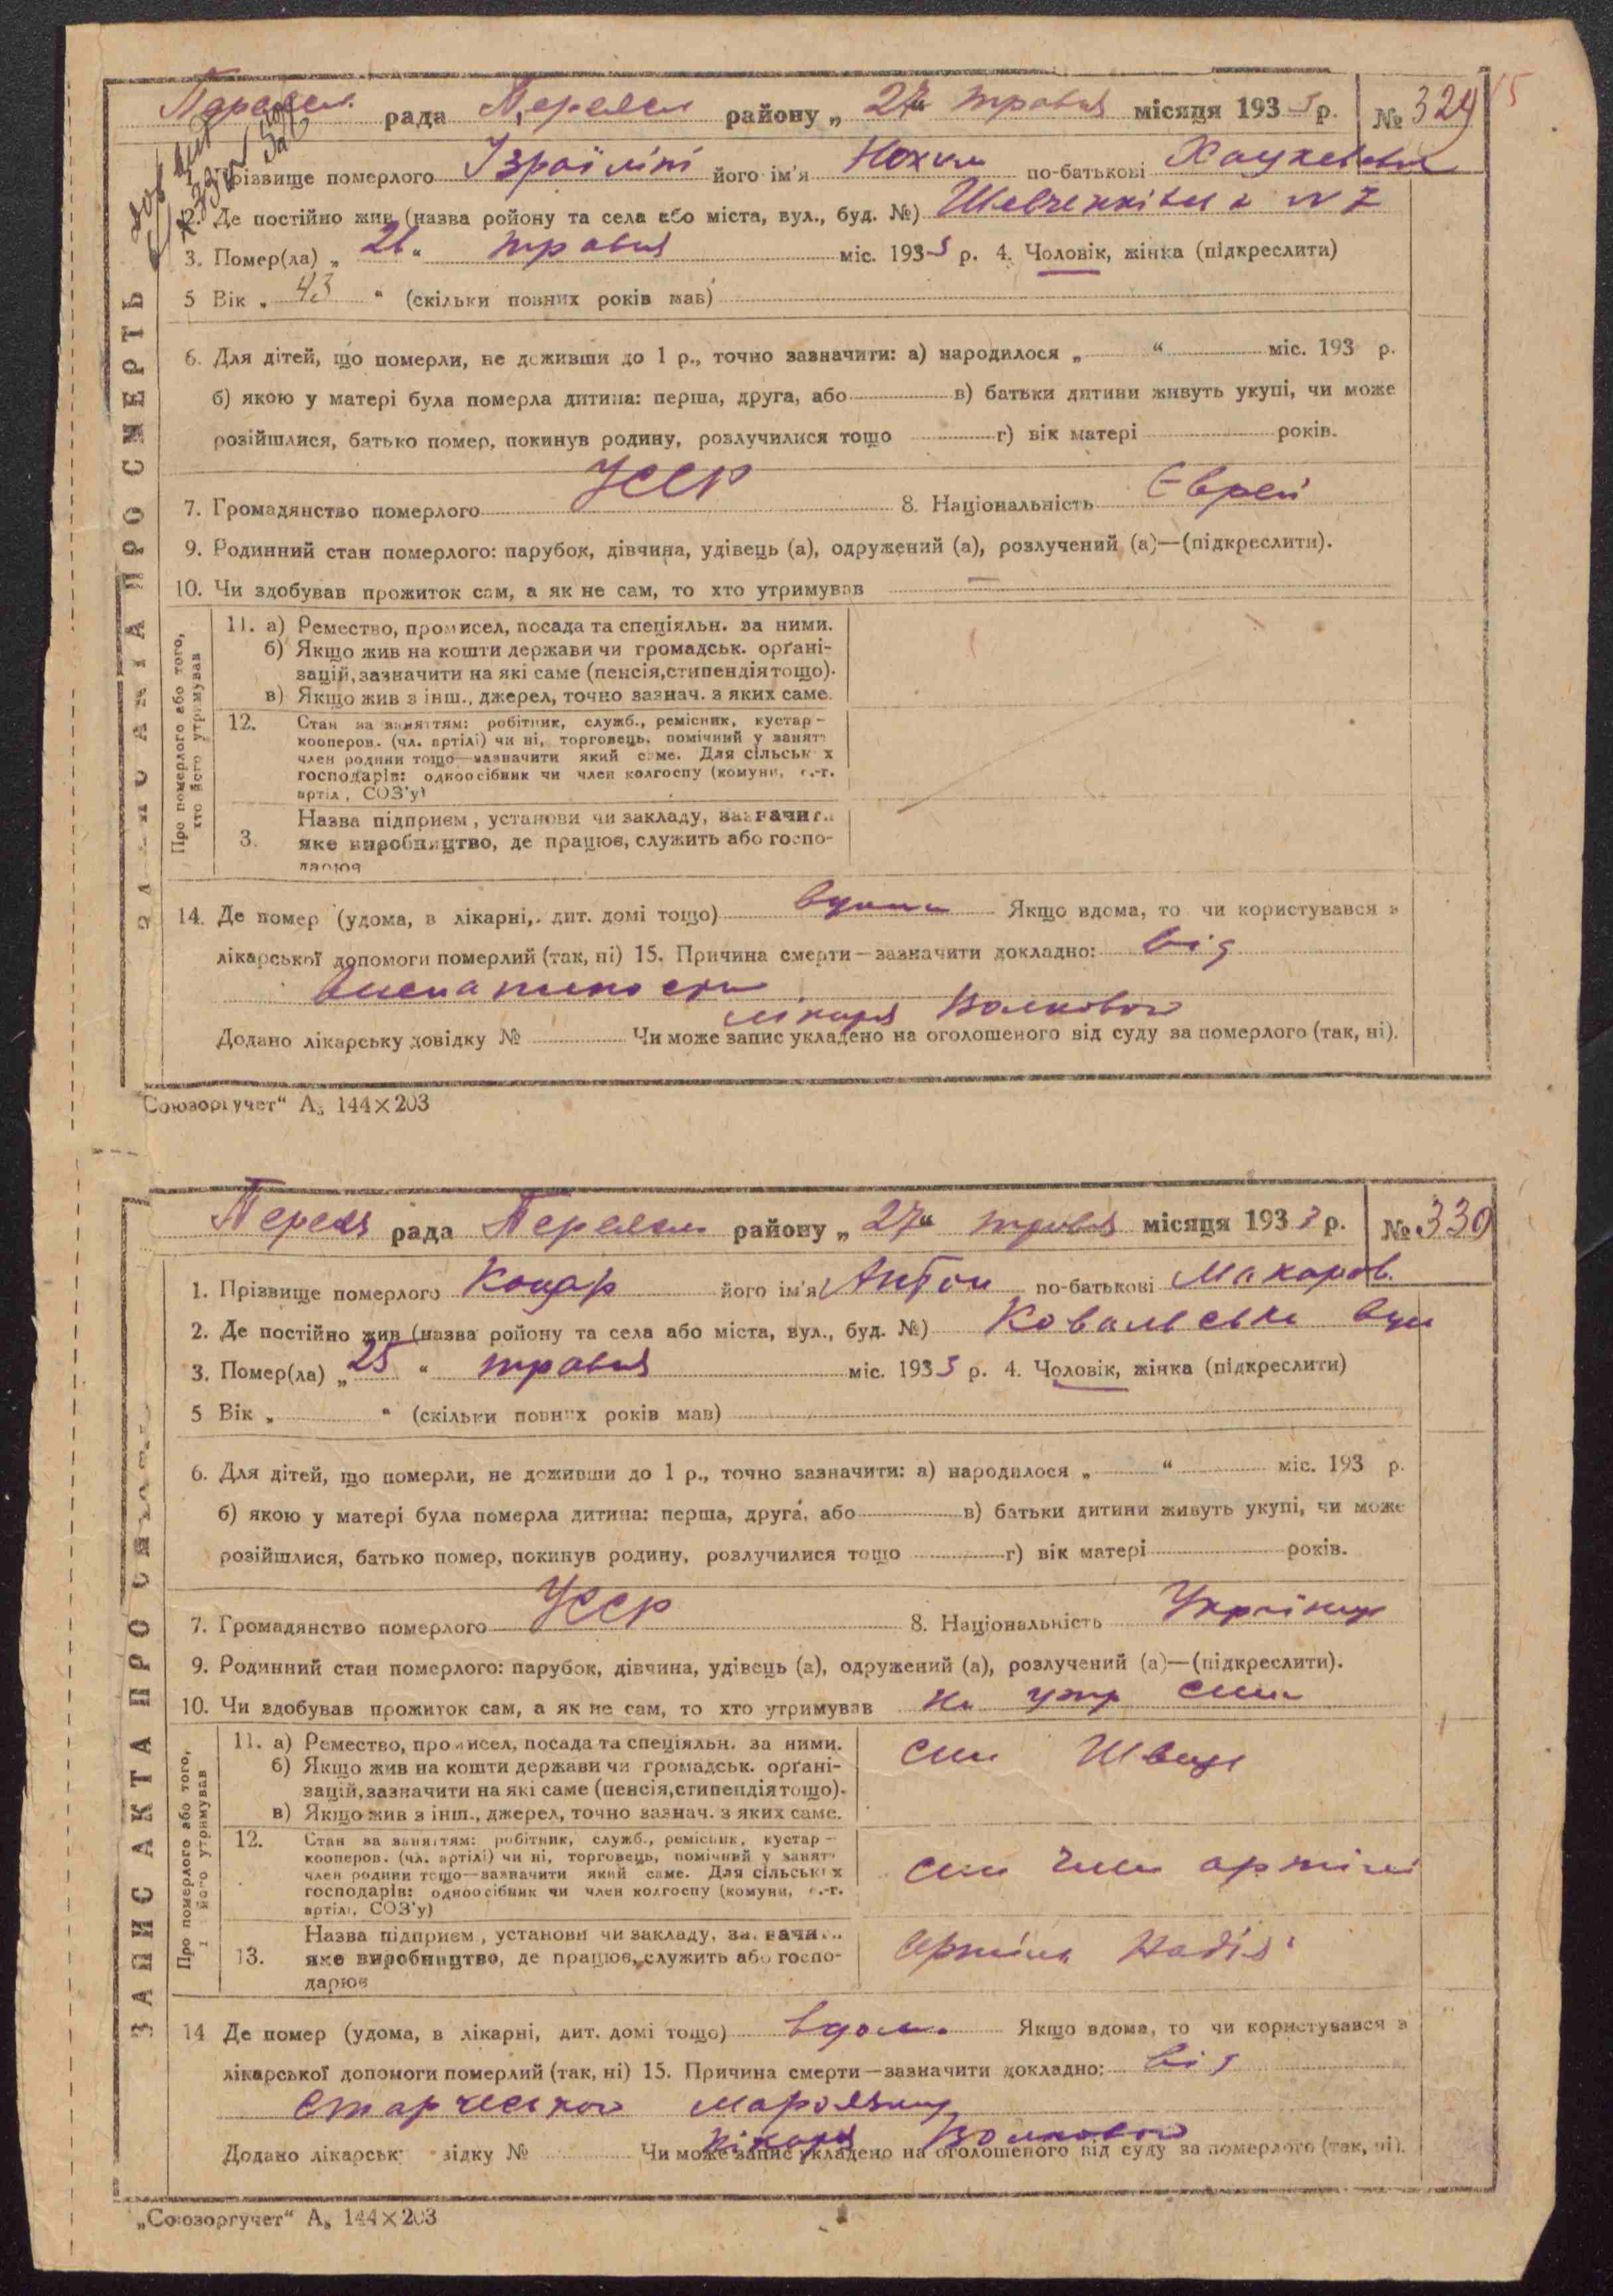 рада район у „ 27 “ травня місяця 1933 р. № 329
15
Прізвище померлого його ім'я Нохим по-батькові
2. Де постійно жив (назва ройону та села або міста, вул., буд. №) № 7
3. Помер(ла) „ 26 “ травня міс. 1933 р. 4. Чоловік, жінка (підкреслити)
5 Вік „ 43 “ (скільки повних років мав)
6. Для дітей, що померли, не доживши до 1 р., точно зазначити: а) народилося „ “ міс. 193 р.
б) якою у матері була померла дитина: перша, друга, або в) батьки дитини живуть укупі, чи може
розійшлися, батько помер, покинув родину, розлучилися тощо г) вік матері років.
7. Громадянство померлого УССР 8. Національність Єврей
9. Родинний стан померлого: парубок, дівчина, удівець (а), одружений (а), розлучений (а)—(підкреслити).
10. Чи здобував прожиток сам, а як не сам, то хто утримував —
Про померлого або того, хто його утримував
11. а) Ремество, промисел, посада та спеціяльн. за ними.
б) Якщо жив на кошти держави чи громадськ. орґані-
зацій, зазначити на які саме (пенсія, стипендія тощо).
в) Якщо жив з інш., джерел, точно зазнач. з яких саме.
12. Стан за заняттям: робітник, служб., ремісник, кустар –
кооперов. (чл. артілі) чи ні, торговець, помічний у занятт
член родини тощо—зазначити який саме. Для сільськ х
господарів: одноосібник чи член колгоспу (комуни, с.-г.
артіл, СОЗ'у)
Назва підприєм, установи чи закладу, зазначити
3. яке виробництво, де працює, служить або госпо-
дарює
14. Де помер (удома, в лікарні, дит. домі тощо) вдома Якщо вдома, то чи користувався з
лікарської допомоги померлий (так, ні) 15. Причина смерти—зазначити докладно: від
лікаря Волкового
Додано лікарську довідку № Чи може запис укладено на оголошеного від суду за померлого (так, ні).
„Союзоргучет“ А₅ 144×203
рада району „ 27 “ травня місяця 1933 р. № 330
ЗАПИС АКТА ПРО
1. Прізвище померлого Коцар його ім'я Антон по-батькові Макаров.
2. Де постійно жив (назва ройону та села або міста, вул., буд. №) Ковальська вул
3. Помер(ла) „ 25 “ травня міс. 1933 р. 4. Чоловік, жінка (підкреслити)
5 Вік „ “ (скільки повних років мав)
6. Для дітей, що померли, не доживши до 1 р., точно зазначити: а) народилося „ “ міс. 193 р.
б) якою у матері була померла дитина: перша, друга, або в) батьки дитини живуть укупі, чи може
розійшлися, батько помер, покинув родину, розлучилися тощо г) вік матері років.
7. Громадянство померлого УССР 8. Національність Українець
9. Родинний стан померлого: парубок, дівчина, удівець (а), одружений (а), розлучений (а)—(підкреслити).
10. Чи здобував прожиток сам, а як не сам, то хто утримував на утр сина
Про померлого або того, його утримував
11. а) Ремество, промисел, посада та спеціяльн. за ними. син Швець
б) Якщо жив на кошти держави чи громадськ. орґані-
зацій, зазначити на які саме (пенсія, стипендія тощо).
в) Якщо жив з інш., джерел, точно зазнач. з яких саме.
12. Стан за заняттям: робітник, служб., ремісник, кустар –
кооперов. (чл. артілі) чи ні, торговець, помічний у занятт
член родини тощо—зазначити який саме. Для сільських син член артілі
господарів: одноосібник чи член колгоспу (комуни, с.-г.
артілі, СОЗ'у)
Назва підприєм, установи чи закладу, зазначити
13. яке виробництво, де працює, служить або госпо- Артіль Надія
дарює
14 Де помер (удома, в лікарні, дит. домі тощо) вдома Якщо вдома, то чи користувався з
лікарської допомоги померлий (так, ні) 15. Причина смерти—зазначити докладно: від
старческого маразму
лікаря Волкового
Додано лікарськ відку № Чи може запис укладено на оголошеного від суду за померлого (так, ні).
„Союзоргучет“ А₅ 144×203